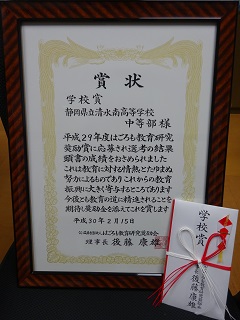 賞状
学校賞
静岡県立清水南高等学校
中等部 様
平成29年度はごろも教育研究
奨励賞に応募され選考の結果
頭書の成績をおさめられました
これは教育に対する情熱とたゆまぬ
努力によるものでありこれからの教育
振興に大きく寄与するところであります
今後とも教育の道に精進されることを
期待し奨励金を添えてこれを賞します
平成30年2月15日
公益財団法人はごろも教育研究奨励会
理事長 後藤康雄
学校賞